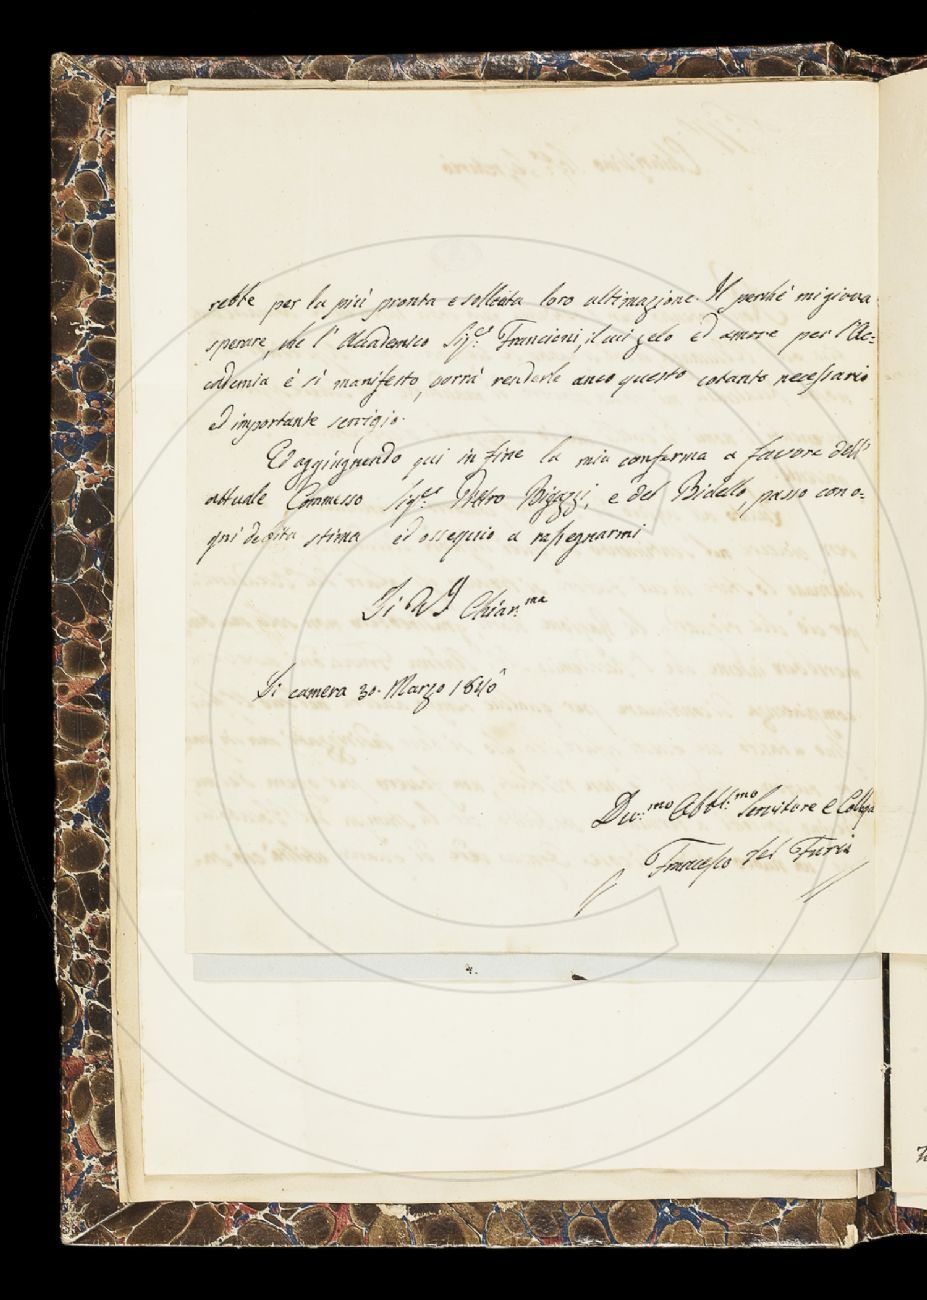 rebbe per la più pronta e sollecita loro ultimazione. Il perchè mi giova
sperare, che l'Accademico Sig.r Francioni, il cui zelo ed amore per l'Ac=
cademia è sì manifesto, vorrà renderle anco questo cotanto necessario
ed importante servigio.
Ed aggiugnendo qui in fine la mia conferma a favore dell'
attuale Commesso Sig.re Pietro Bigazzi, e del Bidello, passo con o-
gni debita stima ed ossequio a rassegnarmi
Di VS Chiar.ma
Di camera 30. Marzo 1840
Dev.mo Obbl.mo Servitore e Collega
Francesco del Furia